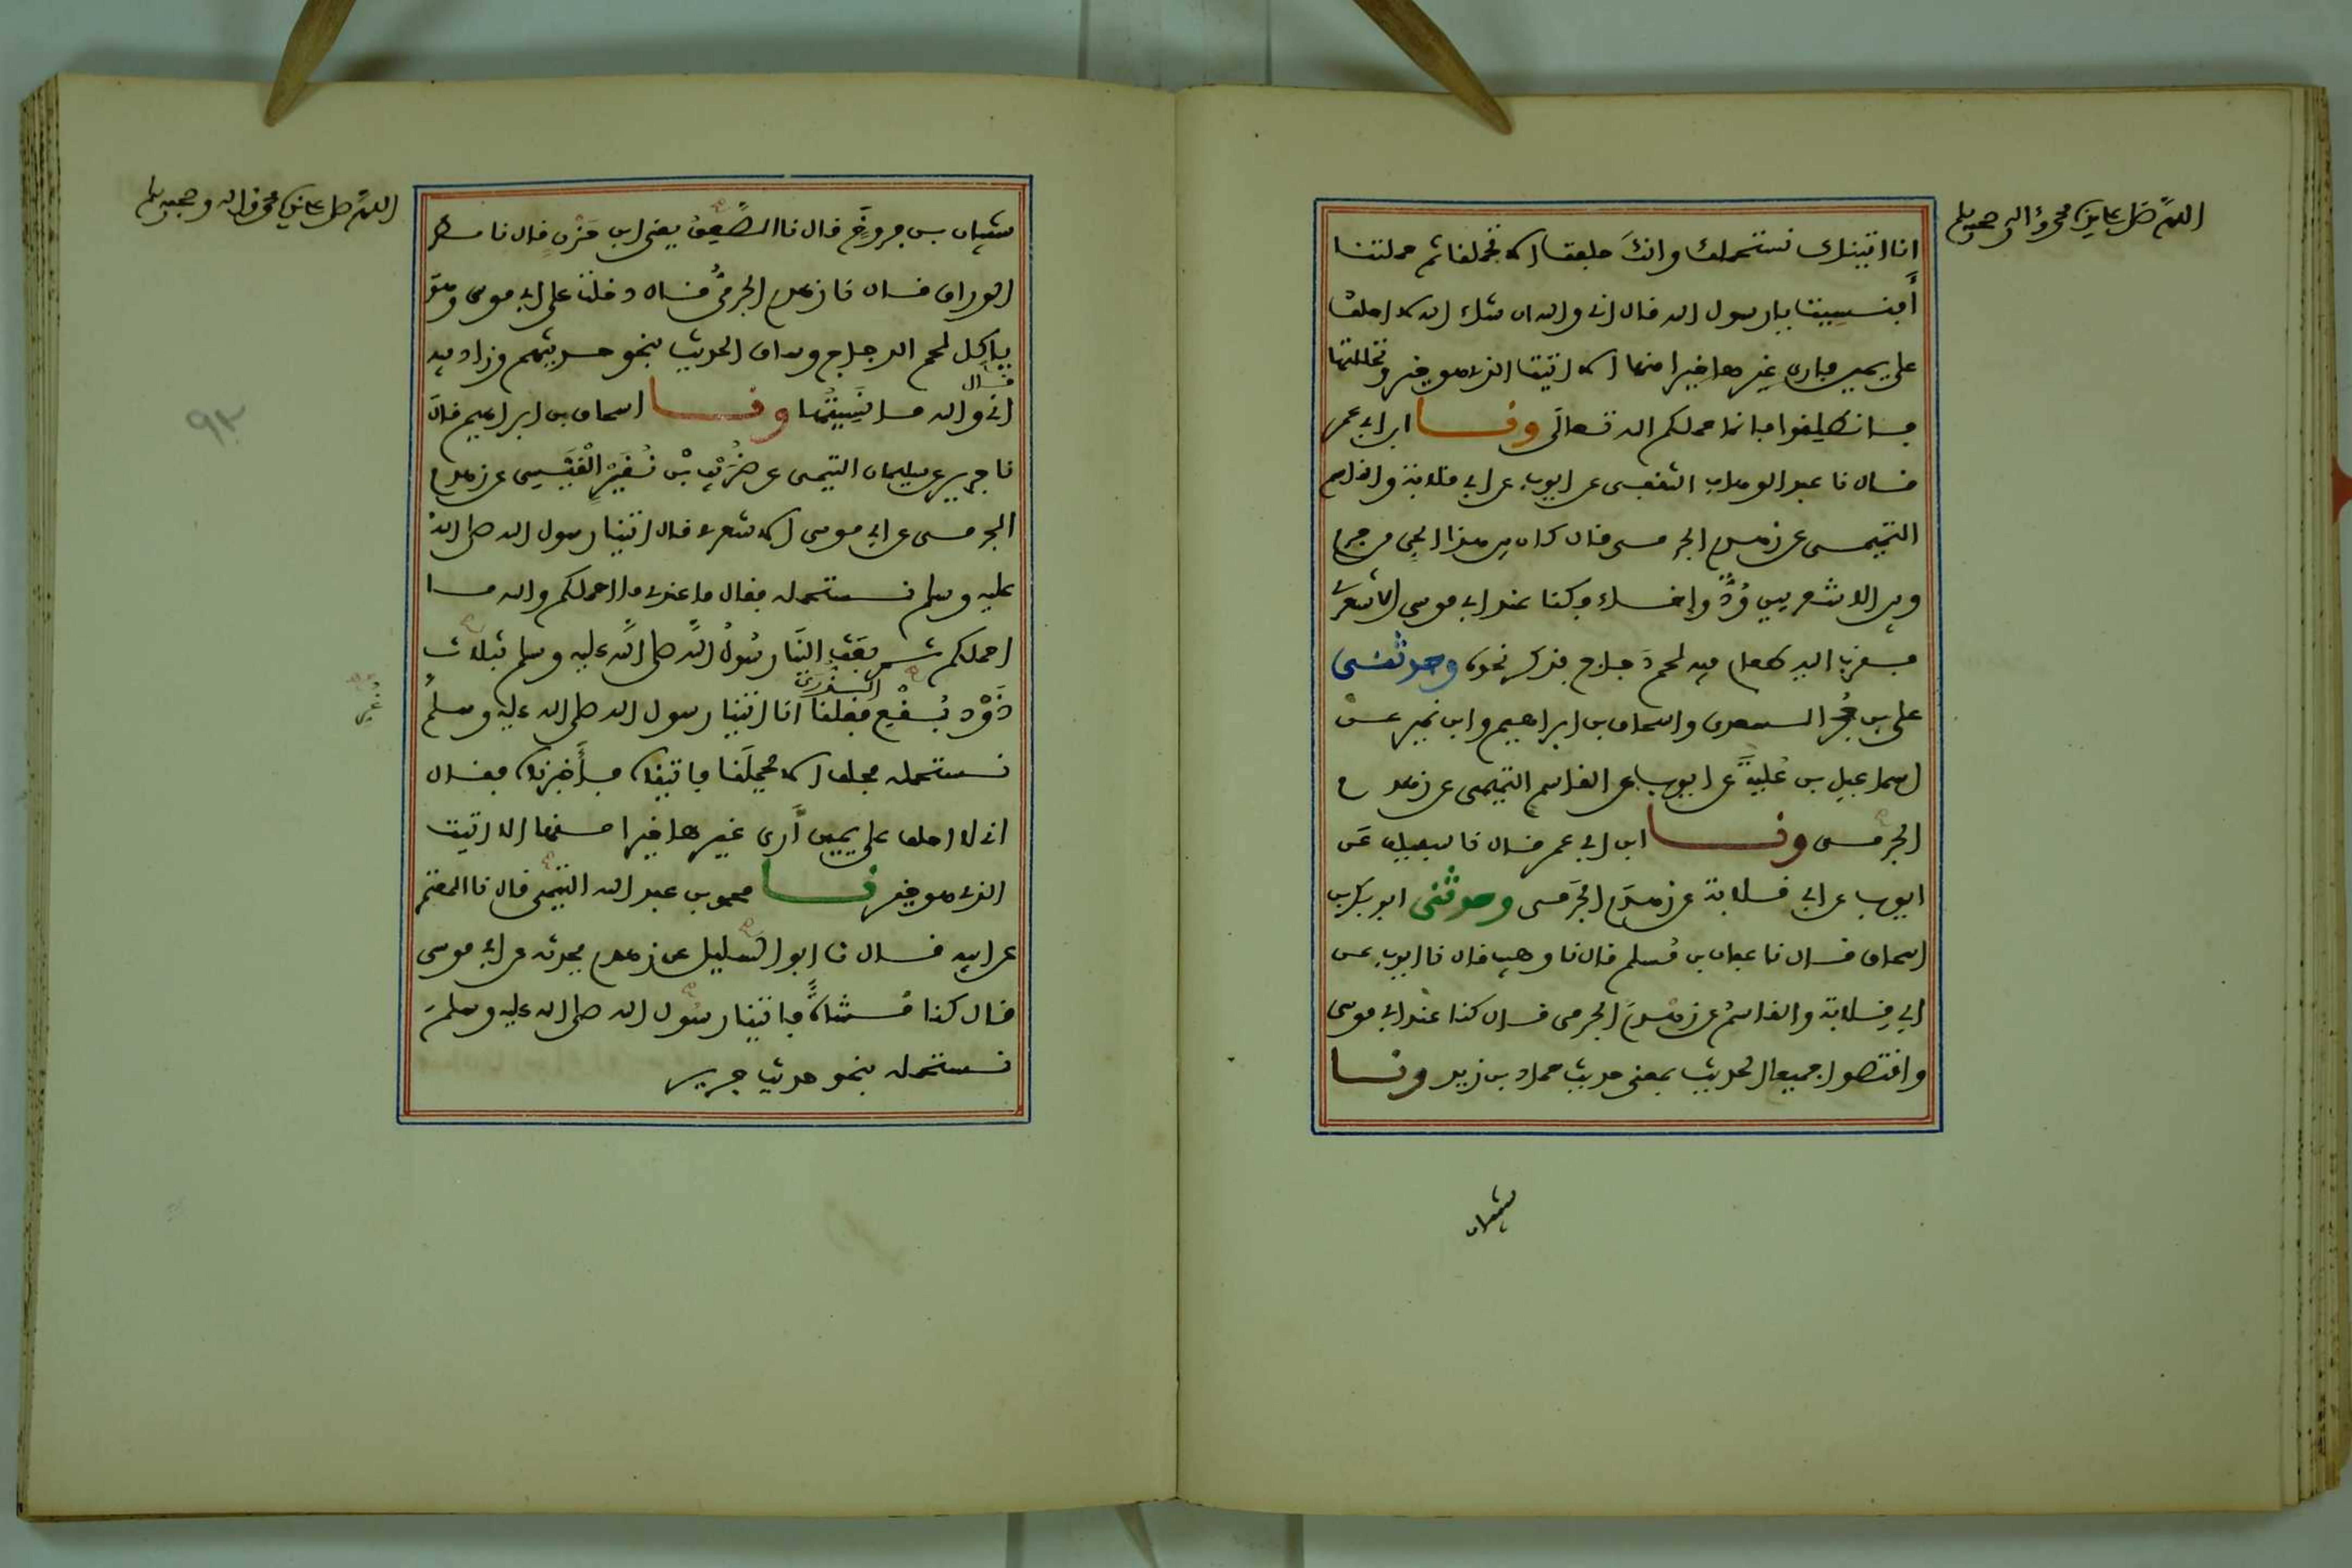 اللهم صل على سيدنا محمد وءاله وصحبه وسلم
انا اتيناك نستحملك وانك حلفت ان لا تحملنا ثم حملتنا
أفنسيت يا رسول الله قال اني والله ان شاء الله لا احلف
على يمين فارى غيرها خيرا منها الا اتيت الذي هو خير وتحللتها
فانطلقوا فانما حملكم الله تعالى ونا ابن ابي عمر
قال نا عبد الوهاب الثقفي عن ايوب عن ابي قلابة والقاسم
التميمي عن زهدم الجرمي قال كان بين هذا الحي من جرم
وبين الاشعريين ود وإخاء فكنا عند ابي موسى الاشعري
فقرب اليه طعام فيه لحم دجاج فذكر نحوه وحدثني
علي بن حجر السعدي واسحاق بن ابراهيم وابن نمير عن
اسماعيل بن علية عن ايوب عن القاسم التميمي عن زهدم
الجرمي ونا ابن ابي عمر قال نا سفيان عن
ايوب عن ابي قلابة عن زهدم الجرمي وحدثني ابو بكر بن
اسحاق قال نا عفان بن مسلم قال نا وهيب قال نا ايوب عن
ابي قلابة والقاسم عن زهدم الجرمي قال كنا عند ابي موسى
واقتصوا جميعا الحديث بمعنى حديث حماد بن زيد ونا
شيبان
اللهم صل على سيدنا محمد وءاله وصحبه وسلم
شيبان بن فروخ قال نا الصعق يعني ابن حزن قال نا مطر
الوراق قال نا زهدم الجرمي قال دخلت على ابي موسى وهو
ياكل لحم الدجاج وساق الحديث بنحو حديثهم وزاد فيه
قال
اني والله ما نسيتها ونا اسحاق بن ابراهيم قال
نا جرير عن سليمان التيمي عن ضريب بن نقير القيسي عن زهدم
الجرمي عن ابي موسى الاشعري قال اتينا رسول الله صلى الله
عليه وسلم نستحمله فقال ما عندي ما احملكم والله ما
احملكم ثم بعث الينا رسول الله صلى الله عليه وسلم بثلاث
ذود بقع الذرى فقلنا انا اتينا رسول الله صلى الله عليه وسلم
نستحمله فحلف ان لا يحملنا فاتيناه فأخبرناه فقال
اني لا احلف على يمين أرى غيرها خيرا منها الا اتيت
الذي هو خير نا محمد بن عبد الله التيمي قال نا المعتمر
عن ابيه قال نا ابو السليل عن زهدم يحدثه عن ابي موسى
قال كنا مشاة فاتينا رسول الله صلى الله عليه وسلم
نستحمله بنحو حديث جرير
غر
٩٢